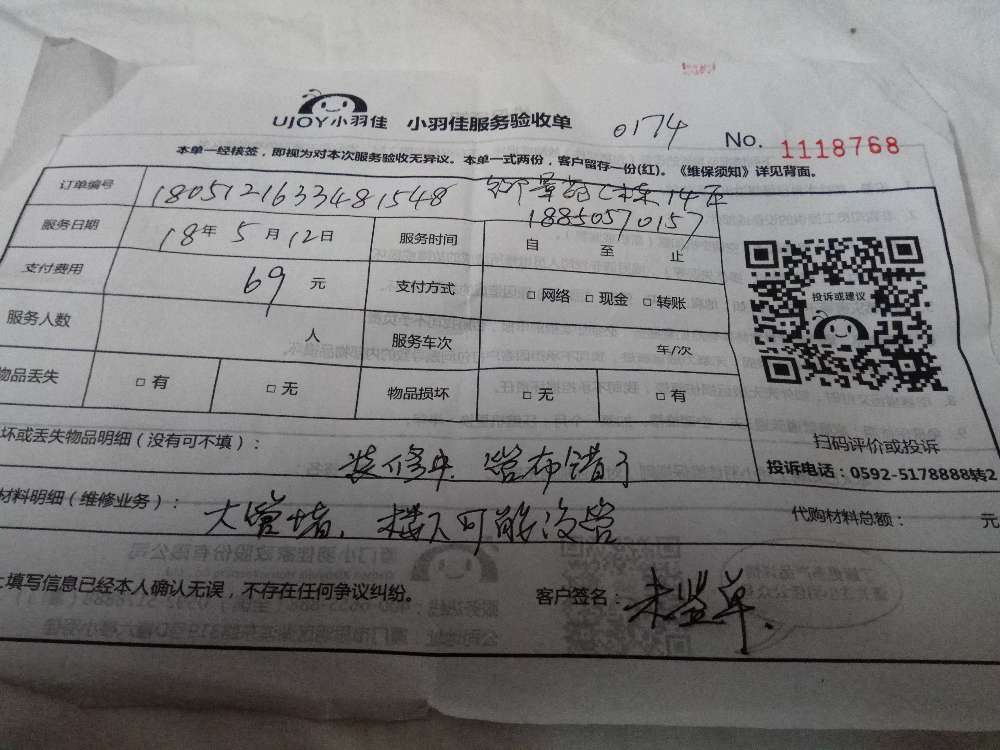 UJOY小羽佳 小羽佳服务验收单 0174 No. 1118768
本单一经核签，即视为对本次服务验收无异议。本单一式两份，客户留存一份(红)。《维保须知》详见背面。
订单编号 1805121633481548
18850570157
服务日期 18年5月12日 服务时间 自 至 止
支付费用 69元 支付方式 □网络 □现金 □转账
服务人数 人 服务车次 车/次
物品丢失 □有 □无 物品损坏 □无 □有
投诉或建议
扫码评价或投诉
投诉电话：0592-5178888转2
坏或丢失物品明细（没有可不填）： 装修中 管布错了
材料明细（维修业务）： 大管堵，楼下可能没管 代购材料总额： 元
填写信息已经本人确认无误，不存在任何争议纠纷。 客户签名：未签单